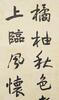 橘柚秋色
上臨風懷